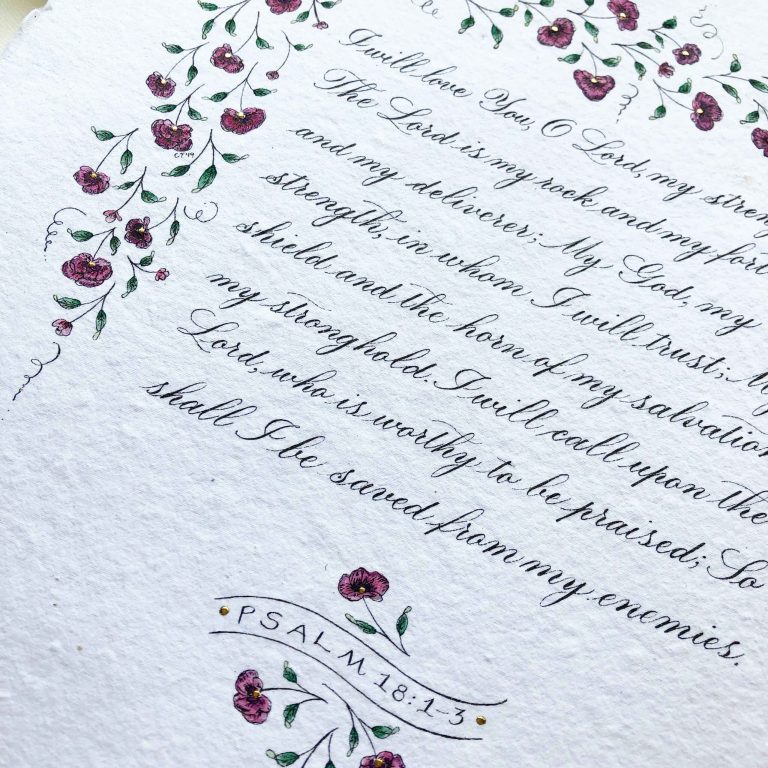 I will love You, O Lord, my streng
The Lord is my rock and my fort
and my deliverer; My God, my
strength, in whom I will trust; My
shield and the horn of my salvation
my stronghold. I will call upon the
Lord, who is worthy to be praised; So
shall I be saved from my enemies.
PSALM 18:1-3